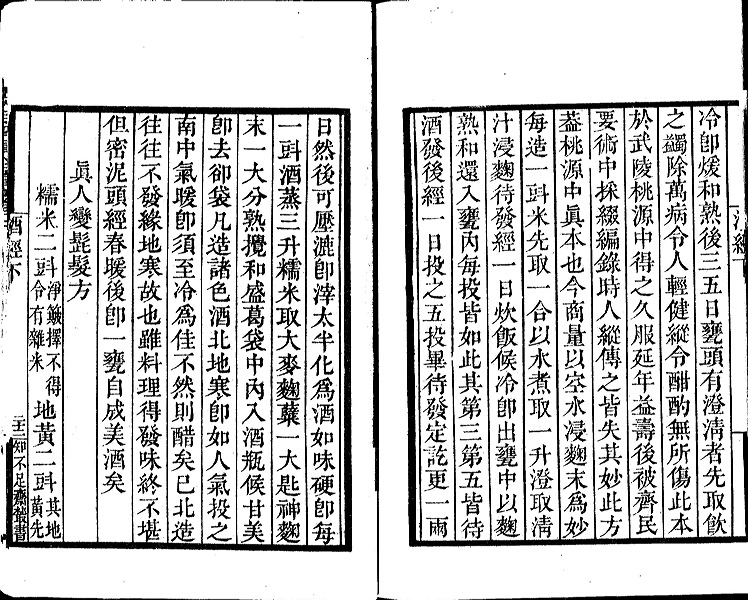 冷卽煖和熟後三五日甕頭有澄淸者先取飮
之蠲除萬病令人輕健縱令酣酌無所傷此本
於武陵桃源中得之久服延年益壽後被齊民
要術中採綴編錄時人縱傳之皆失其妙此方
葢桃源中眞本也今商量以空水浸麴末爲妙
每造一㪷米先取一合以水煮取一升澄取淸
汁浸麴待發經一日炊飯候冷卽出甕中以麴
熟和還入甕內每投皆如此其第三第五皆待
酒發後經一日投之五投畢待發定訖更一兩
日然後可壓漉卽滓太半化爲酒如味硬卽每
一㪷酒蒸三升糯米取大麥麴蘖一大匙神麴
末一大分熟攪和盛葛袋中內入酒瓶候甘美
卽去卻袋凡造諸色酒北地寒卽如人氣投之
南中氣暖卽須至冷爲佳不然則醋矣已北造
往往不發緣地寒故也雖料理得發味終不堪
但密泥頭經春暖後卽一甕自成美酒矣
眞人變髭髮方
糯米二㪷淨簸擇不得令有雜米地黃二㪷其地黃先
酒經下
二十三知不足齋叢書